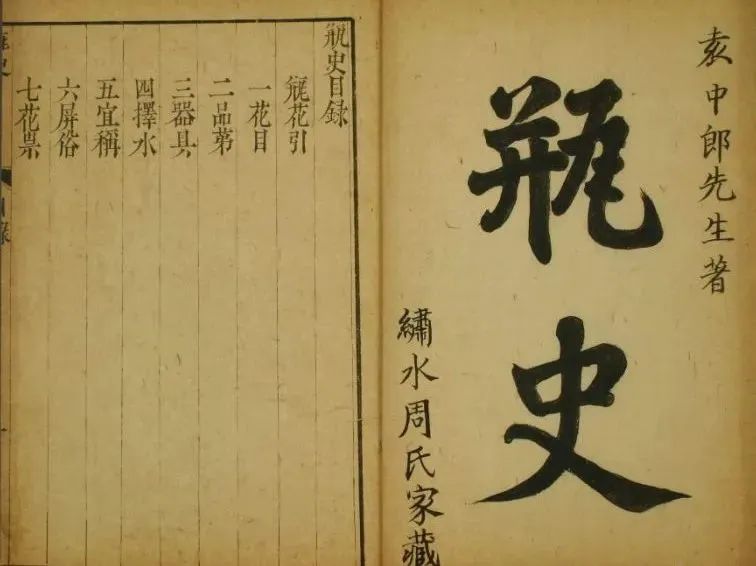 袁中郎先生著
瓶史
繡水周氏家藏
瓶史目録
瓶花引
一花目
二品第
三器具
四擇水
五宜稱
六屏俗
七花祟